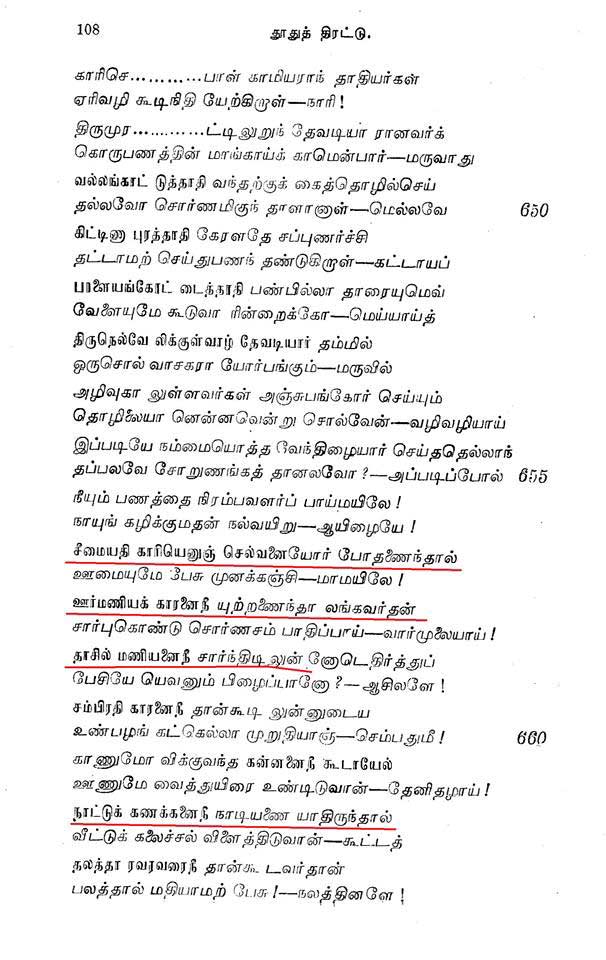 108
தூதுத் திரட்டு.
காரிசெ............பாள் காமியராந் தாதியர்கள்
ஏரிவழி கூடிநிதி யேற்கிறாள்—நாரி !
திருமுர............ட்டிலுறுந் தேவடியா ரானவர்க்
கொருபணத்தின் மாங்காய்க் காமென்பார்—மருவாது
வல்லங்காட் டுத்தாதி வந்தற்குக் கைத்தொழில்செய்
தல்லவோ சொர்ணமிகுந் தாளானாள்—மெல்லவே 650
கிட்டிணா புரத்தாதி கேரளதே சப்புணர்ச்சி
தட்டாமற் செய்துபணந் தண்டுகிறாள்—கட்டாயப்
பாளையங்கோட் டைத்தாதி பண்பில்லா தாரையுமெவ்
வேளையுமே கூடுவா ரின்றைக்கோ—மெய்யாய்த்
திருநெல்வே லிக்குள்வாழ் தேவடியார் தம்மில்
ஒருசொல் வாசகரா யோர்பங்கும்—மருவில்
அழிவுகா லுள்ளவர்கள் அஞ்சுபங்கோர் செய்யும்
தொழிலையா னென்னவென்று சொல்வேன்—வழிவழியாய்
இப்படியே நம்மையொத்த வேந்திழையார் செய்ததெல்லாந்
தப்பலவே சோறுணங்கத் தானலவோ ?—அப்படிப்போல் 655
நீயும் பணத்தை நிரம்பவளர்ப் பாய்மயிலே !
நாயுங் கழிக்குமதன் நல்வயிறு—ஆயிழையே !
சீமையதி காரியெனுஞ் செல்வனையோர் போதணைந்தால்
ஊமையுமே பேசு முனக்கஞ்சி—மாமயிலே !
ஊர்மணியக் காரனைநீ யுற்றணைந்தா லங்கவர்தன்
சார்புகொண்டு சொர்ணசம் பாதிப்பாய்—வார்முலையாய் !
தாசில் மணியனைநீ சார்ந்திடிலுன் னோடெதிர்த்துப்
பேசியே யெவனும் பிழைப்பானோ ?—ஆசிலளே !
சம்பிரதி காரனைநீ தான்கூடி லுன்னுடைய
உண்பழங் கட்கெல்லா முறுதியாஞ்—செம்பதுமீ ! 660
காணுமோ விக்குவந்த கன்னனைநீ கூடாயேல்
ஊணுமே வைத்துயிரை உண்டிடுவான்—தேனிதழாய் !
நாட்டுக் கணக்கனைநீ நாடியணை யாதிருந்தால்
வீட்டுக் கலைச்சல் விளைத்திடுவான்—கூட்டத்
தலத்தா ரவரவரைநீ தான்கூ டவர்தான்
பலத்தால் மதியாமற் பேசு !—நலத்தினளே !